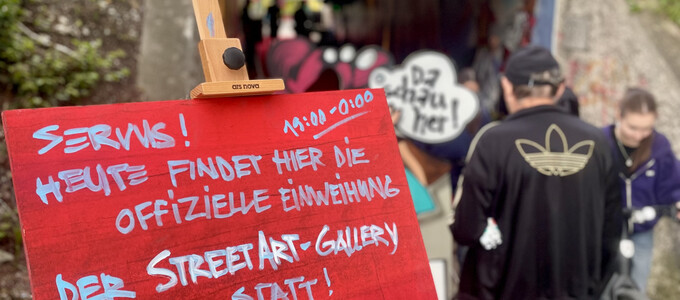 ars nova
SERVUS!
19:00-0:00
HEUTE FINDET HIER DIE
OFFIZIELLE EINWEIHUNG
DER STREETART-GALLERY
STATT!
Da
schau
her!